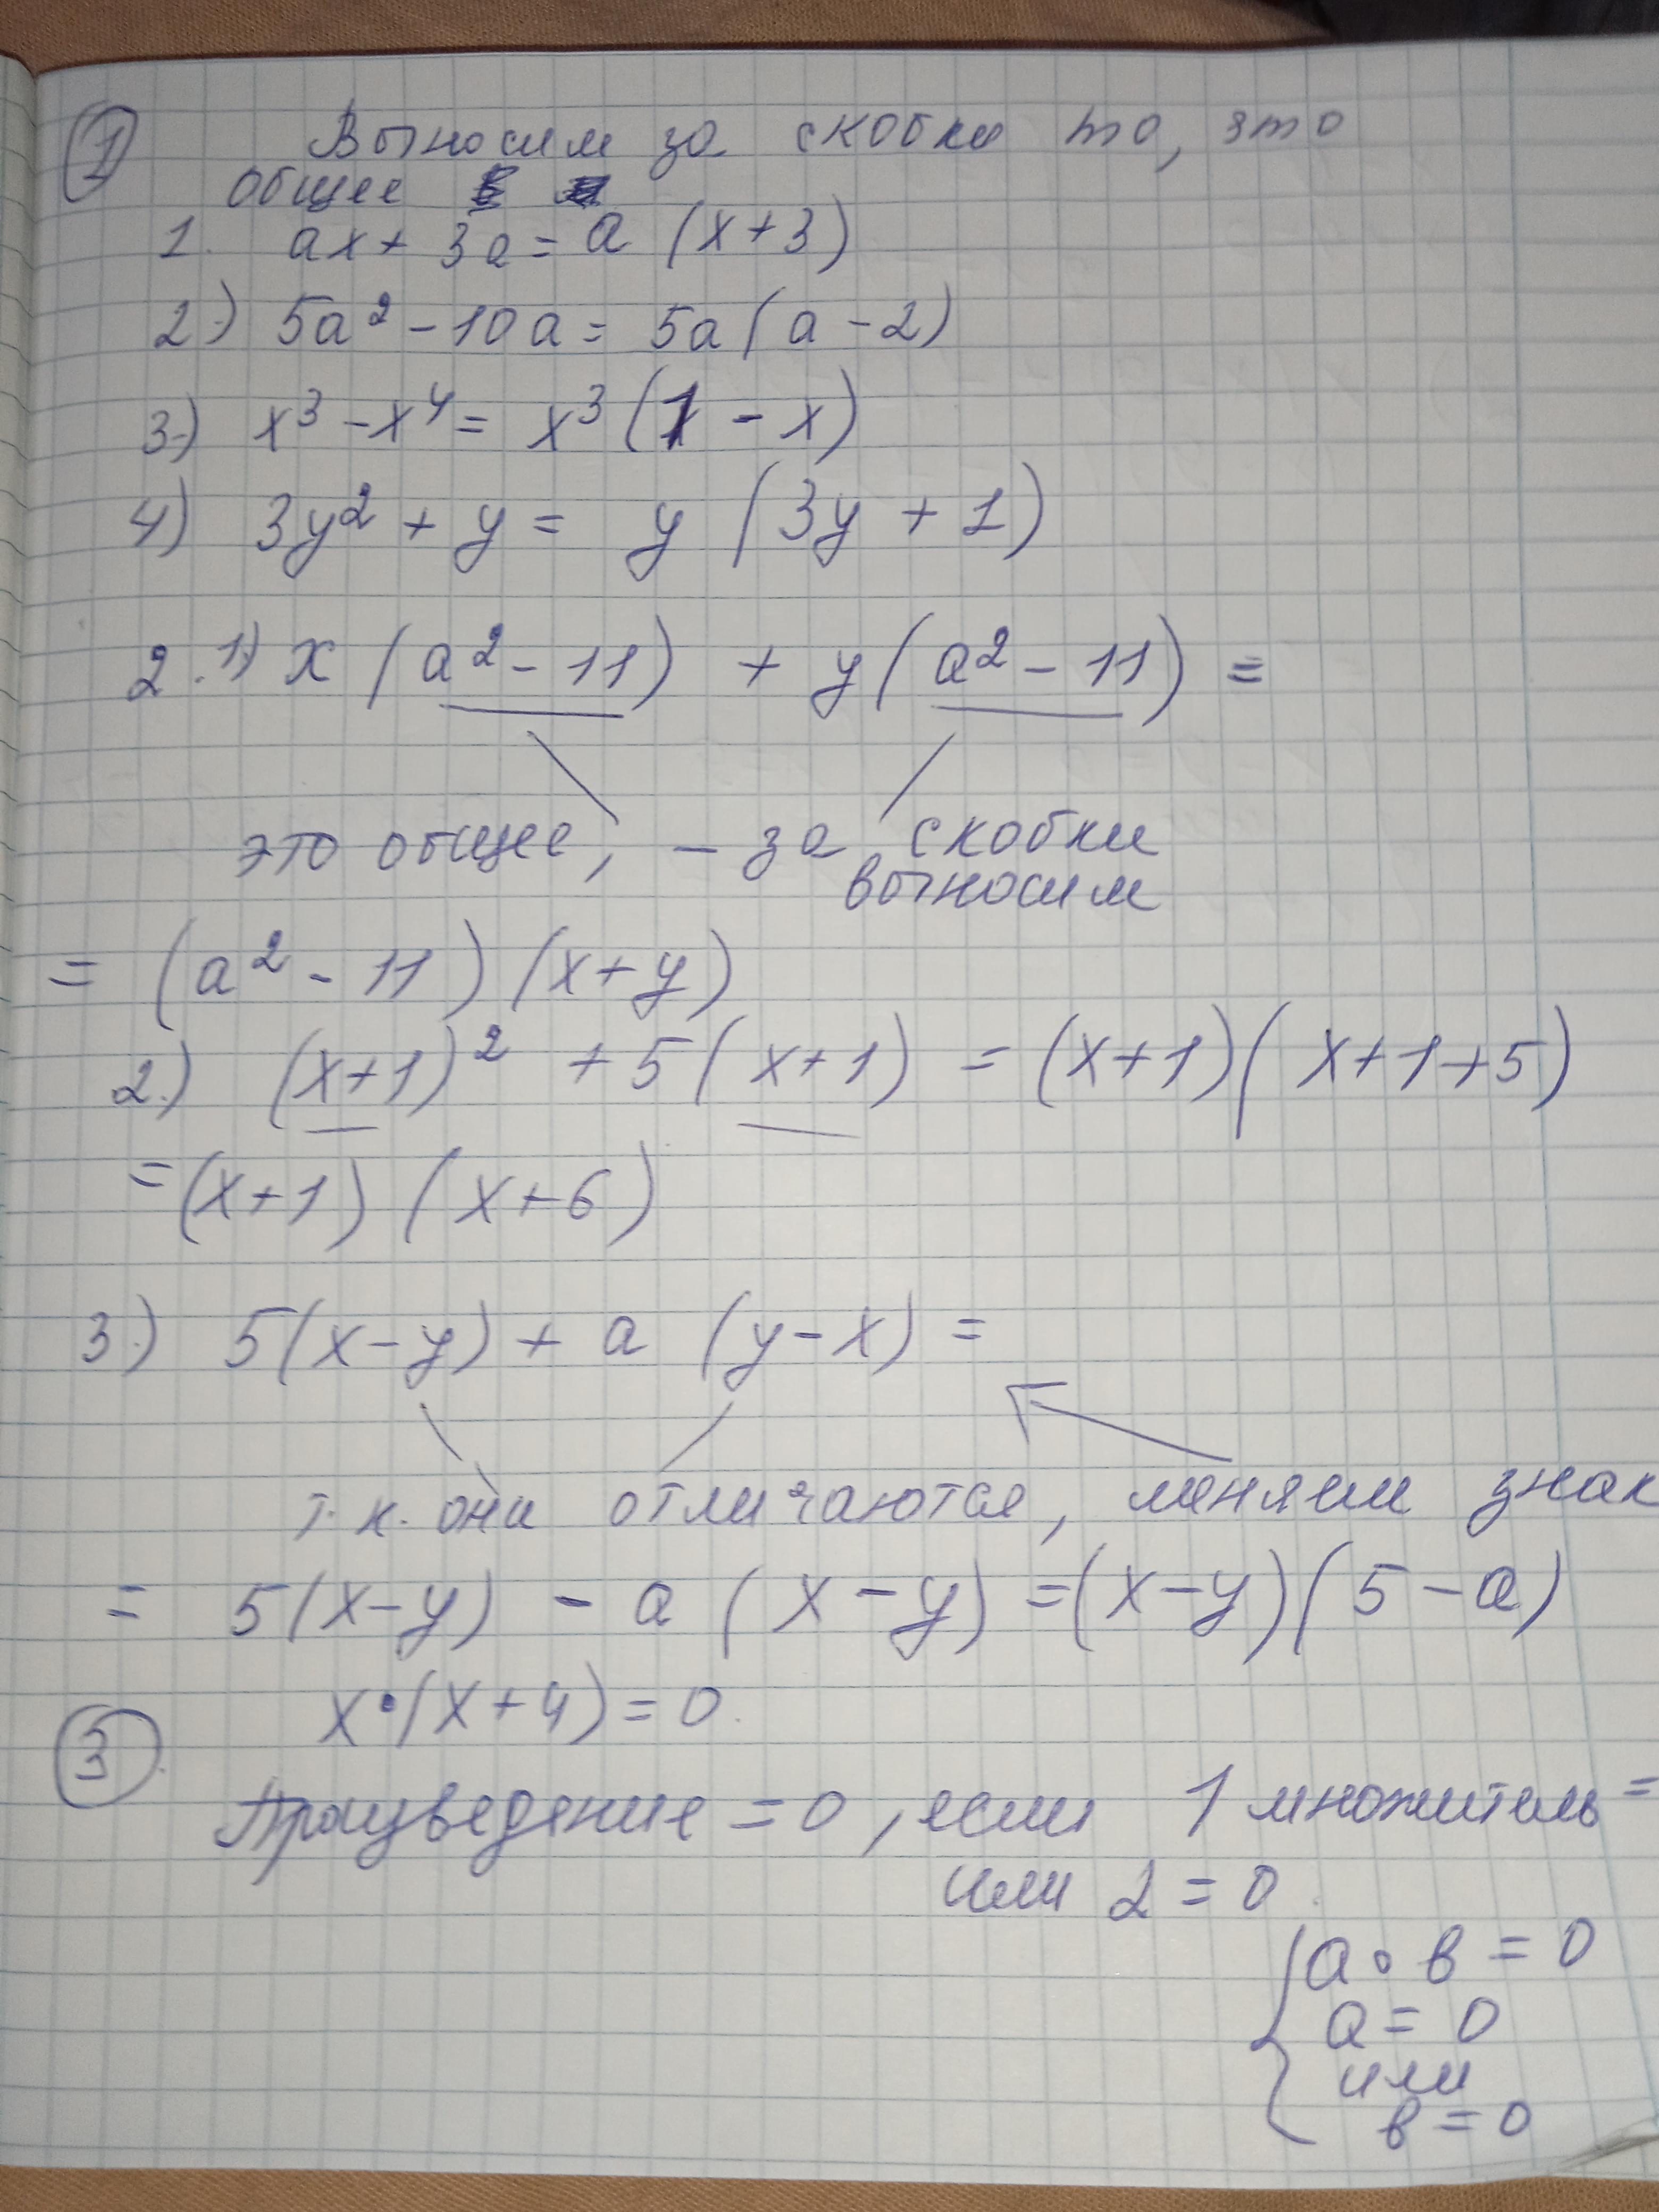 ① Выносим за скобки то, что
общее
1. ax + 3a = a (x+3)
2.) 5a² - 10a = 5a(a - 2)
3.) x³ - x⁴ = x³ (1 - x)
4) 3y² + y = y (3y + 1)
2. 1.) x (a² - 11) + y (a² - 11) =
это общее, - за скобки
выносим
= (a² - 11) (x+y)
2.) (x+1)² + 5 (x+1) = (x+1)(x+1+5)
= (x+1) (x+6)
3.) 5(x-y) + a (y-x) =
т.к. они отличаются, меняем знак
= 5(x-y) - a (x-y) = (x-y)(5-a)
x•(x+4)=0.
③ Произведение = 0, если 1 множитель =
или 2 = 0.
{a∘b = 0
a = 0
или
b = 0